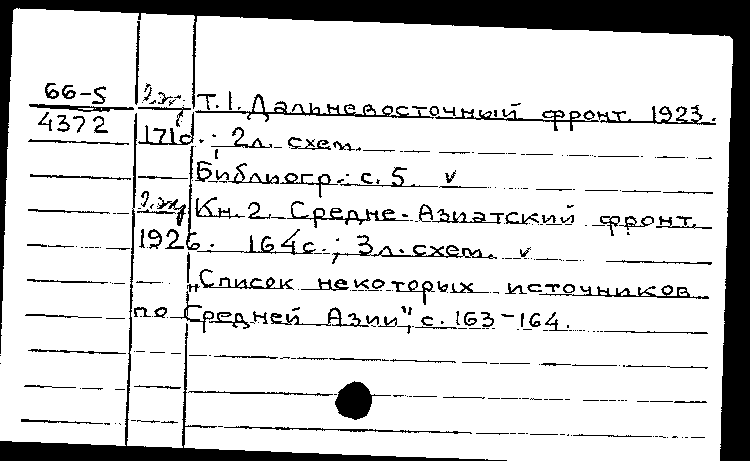 66-S Т.1. Дальневосточный фронт. 1923.
4372 171с.; 2л. схем.
Библиогр.: с. 5. v
Кн. 2. Средне-Азиатский фронт.
1926. 164с.; 3л. схем. v
„Список некоторых источников
по Средней Азии", с. 163-164.